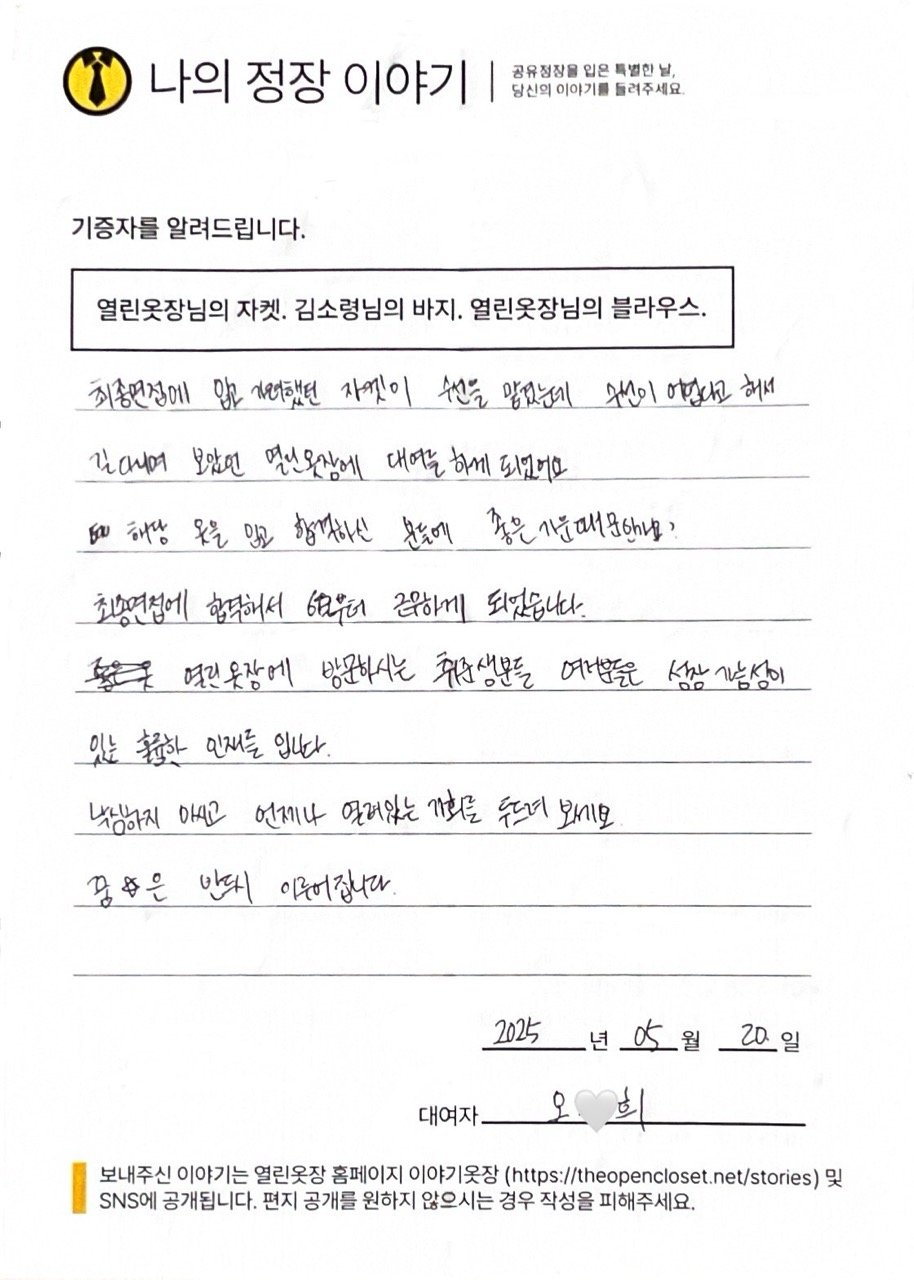 나의 정장 이야기
공유정장을 입은 특별한 날,
당신의 이야기를 들려주세요.
기증자를 알려드립니다.
열린옷장님의 자켓. 김소령님의 바지. 열린옷장님의 블라우스.
최종면접에 입고 가려했던 자켓이 수선을 맡겼는데 수선이 어렵다고 해서
길 다니며 보았던 열린옷장에 대여를 하게 되었어요
해당 옷을 입고 합격하신 분들에 좋은 기운 때문인가요?
최종면접에 합격해서 6월부터 근무하게 되었습니다.
열린옷장에 방문하시는 취준생분들 여러분들은 성장 가능성이
있는 훌륭한 인재들 입니다.
낙심하지 마시고 언제나 열려있는 기회를 두드려 보세요
꿈은 반드시 이루어집니다.
2025 년 05 월 20 일
대여자 오🤍희
보내주신 이야기는 열린옷장 홈페이지 이야기옷장 (https://theopencloset.net/stories) 및
SNS에 공개됩니다. 편지 공개를 원하지 않으시는 경우 작성을 피해주세요.